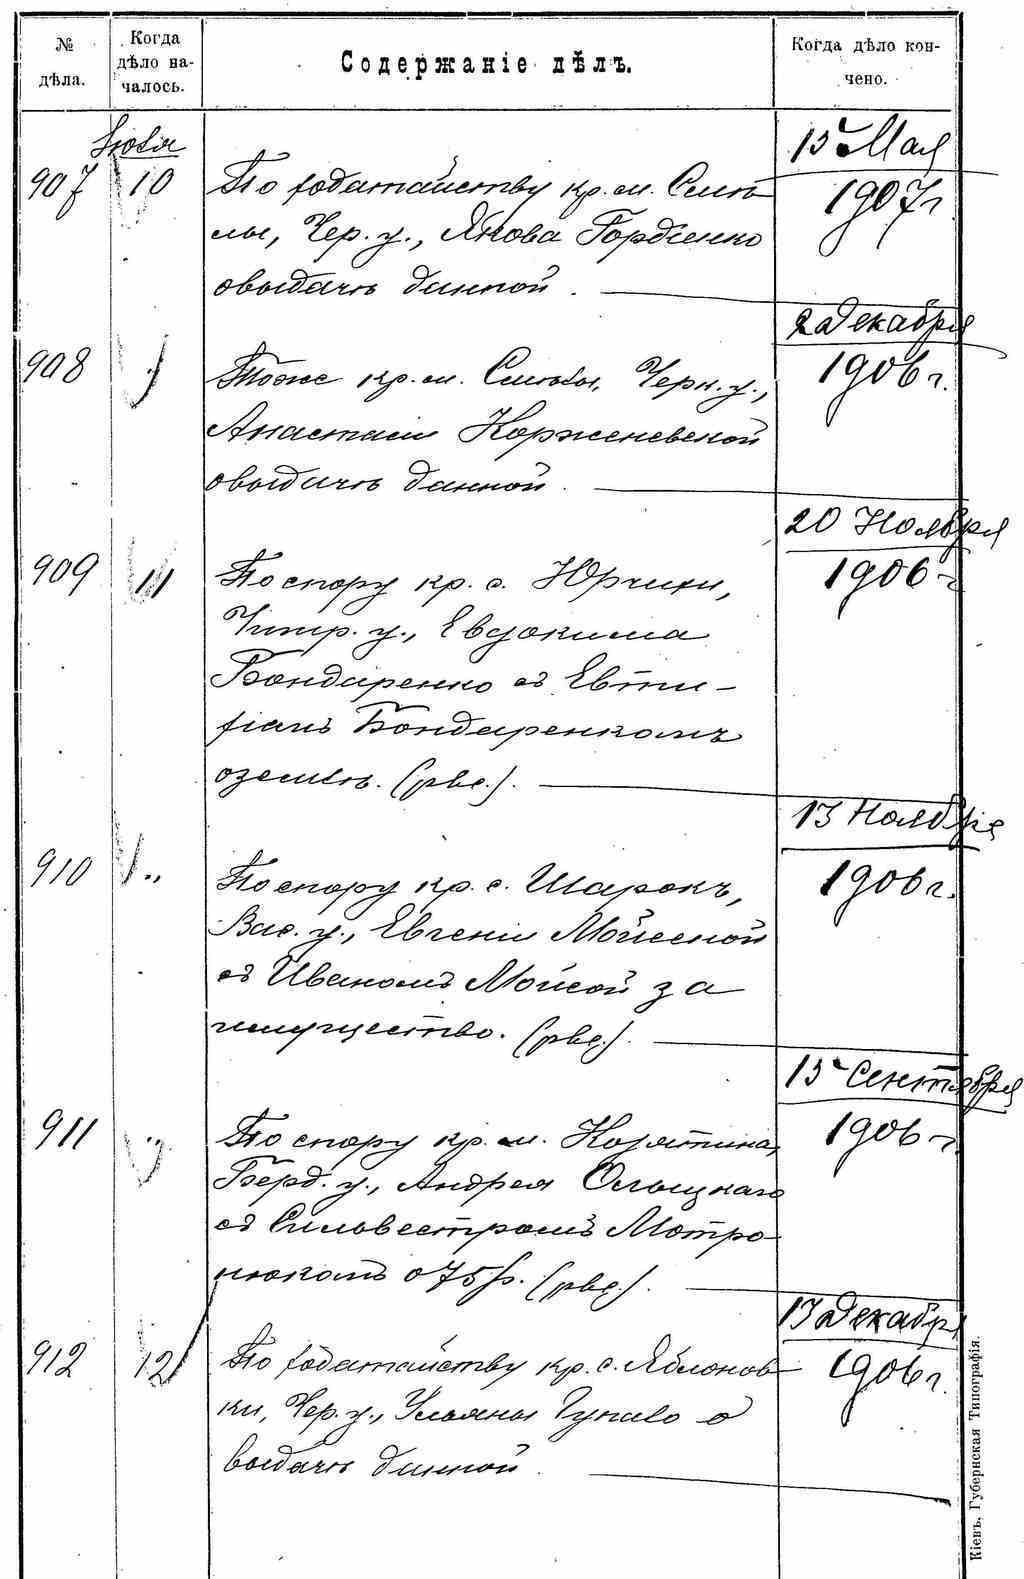 № дѣла.
Когда
дѣло на-
чалось.
Содержаніе дѣлъ.
Когда дѣло кон-
чено.
Іюля
907
10
По ходатайству кр. м. Смѣ-
лы, Чер. у., Якова Гордіенко
о выдачѣ данной.
15 Мая
1907 г.
908
"
Тоже кр. м. Смѣлы, Черк. у.,
Анастасіи Корженевской
о выдачѣ данной.
2 Декабря
1906 г.
909
11
По спору кр. с.
Чигир. у., Евдокима
Бондаренко съ Евти-
фіемъ Бондаренкомъ
о землѣ.
20 Ноября
1906 г.
910
"
По спору кр. с. Шарокъ,
Вас. у., Евгеніи
съ Иваномъ Мойсой за
имущество.
13 Ноября
1906 г.
911
"
По спору кр. м. Козятина,
Берд. у., Андрея
съ Сильвестромъ Мотро-
нюкомъ о 75 р.
15 Сентября
1906 г.
912
12
По ходатайству кр. с. Яблонов-
ки, Чер. у., Ульяны Гупало о
выдачѣ данной.
13 Декабря
1906 г.
Кіевъ, Губернская Типографія.